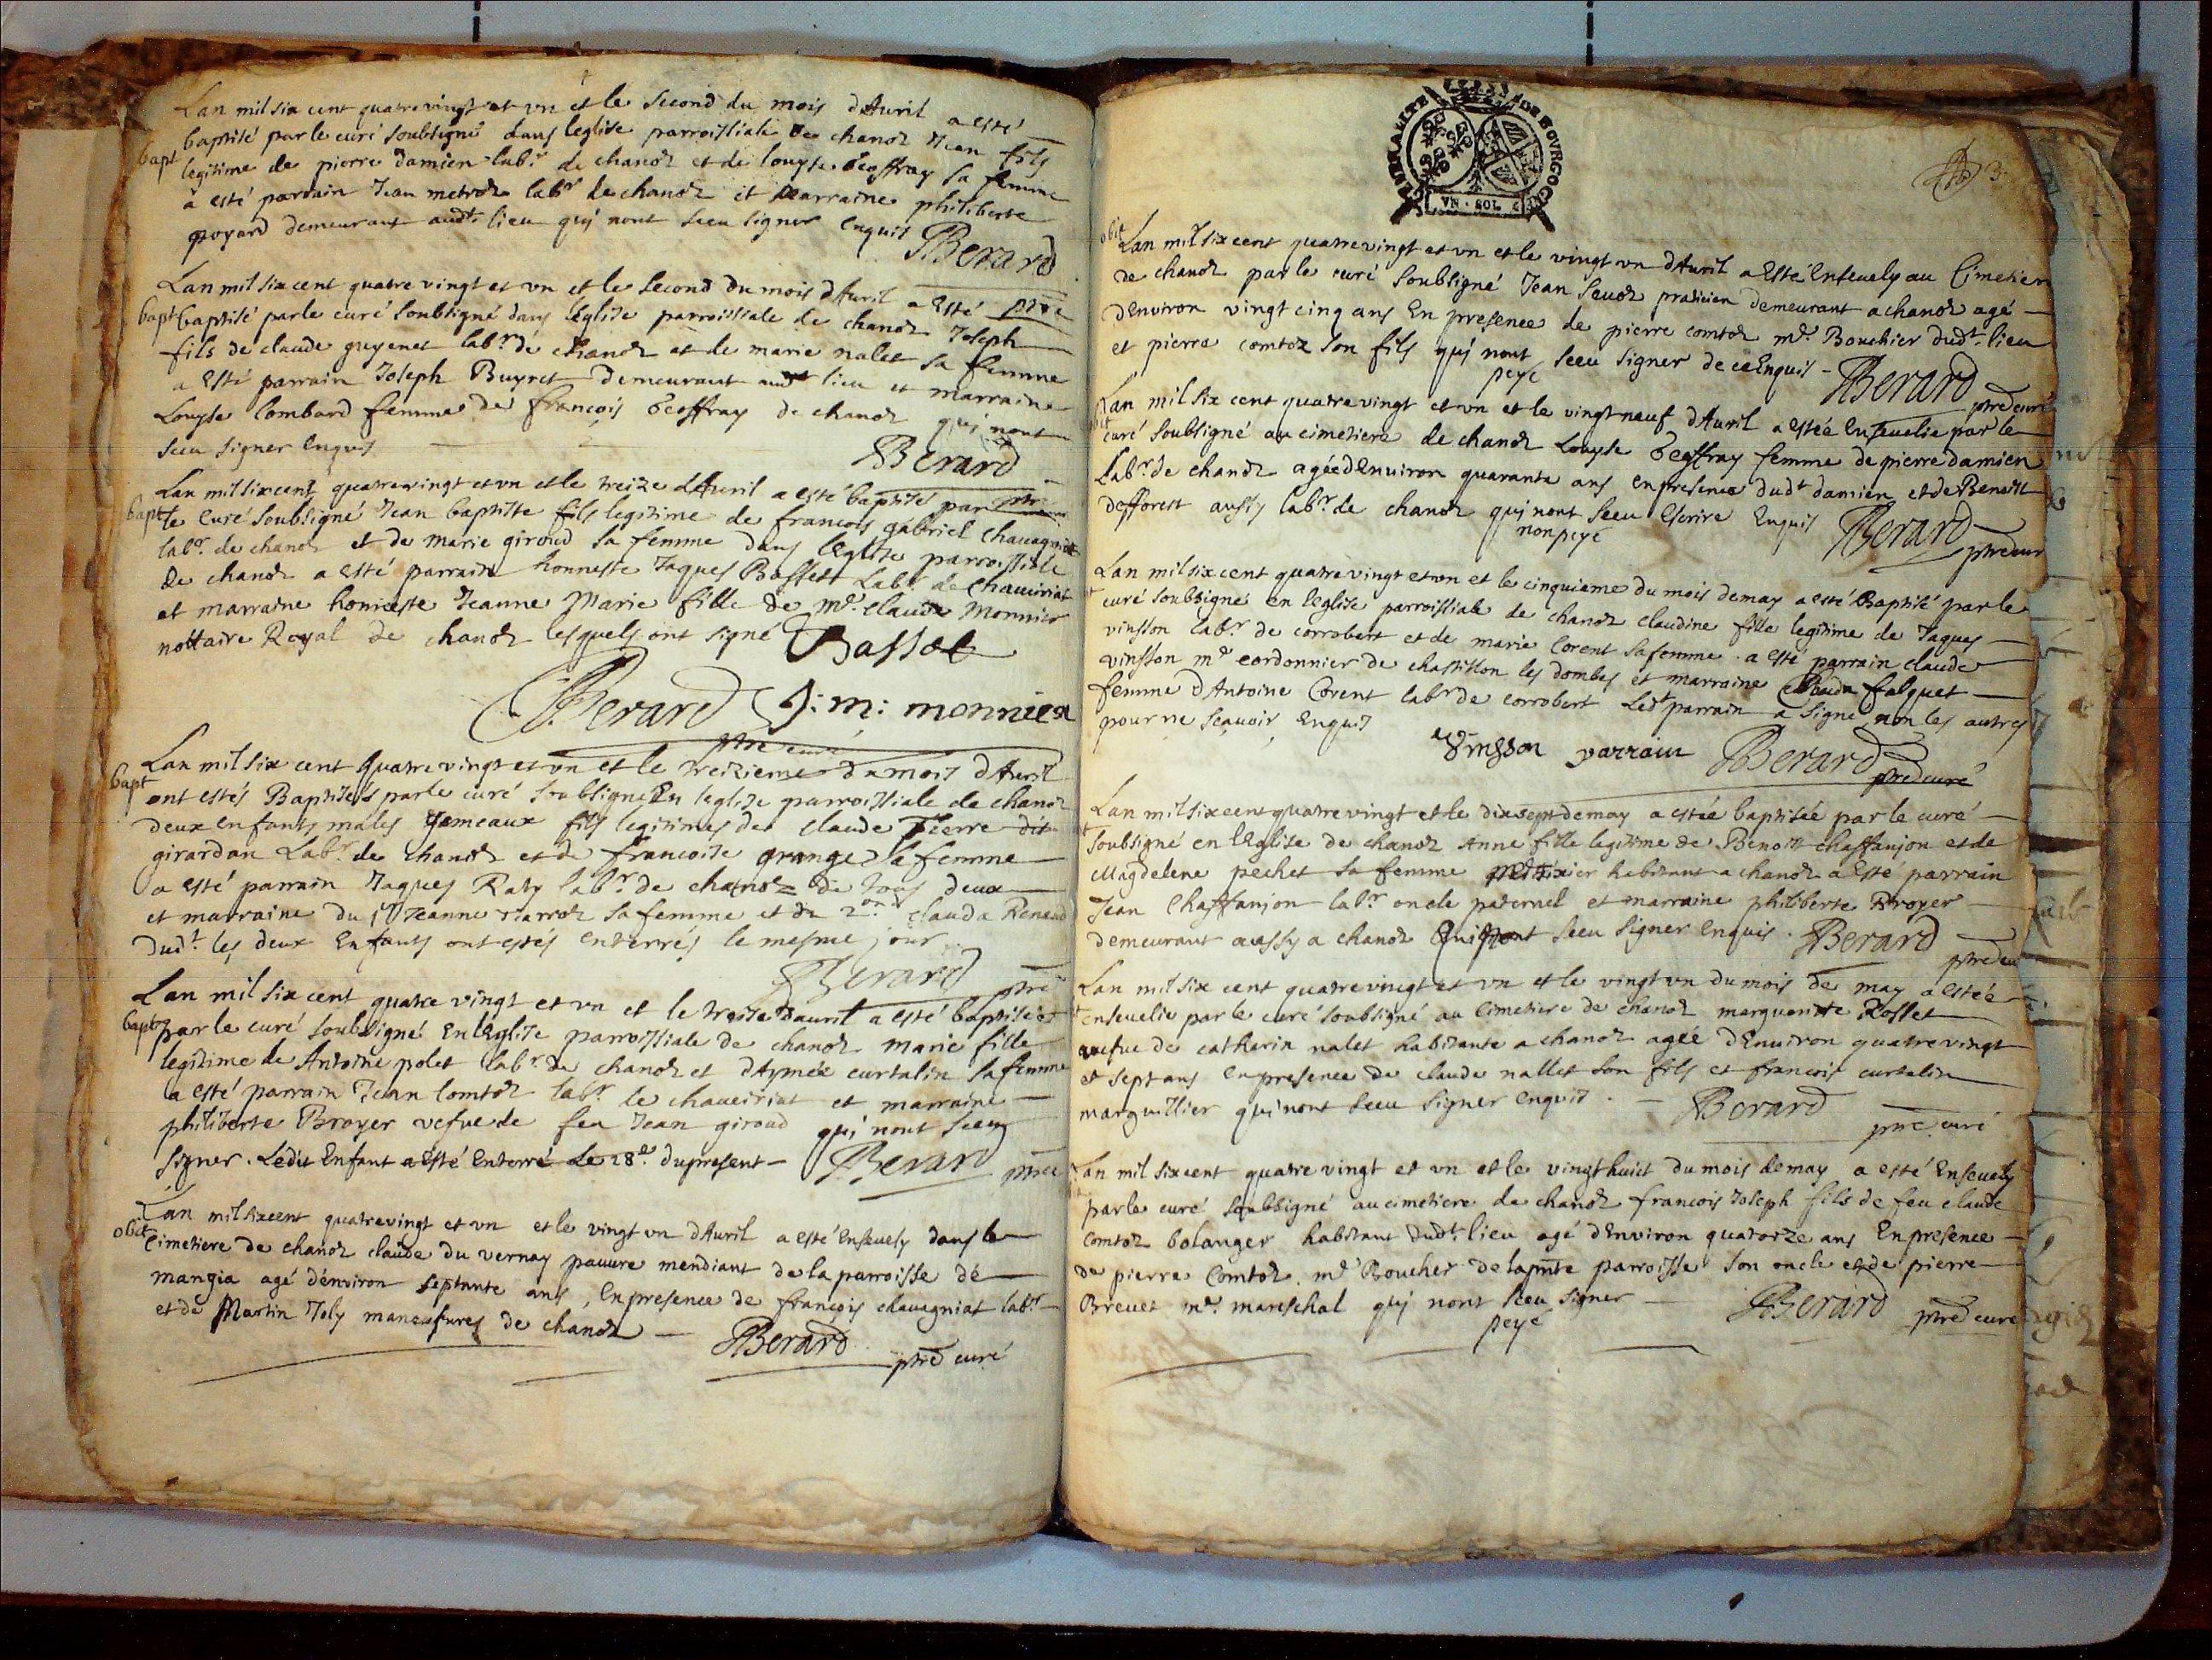 Lan mil six cent quatre vingt et vn et le second du mois dAuril a esté
baptisé par le curé soubsigné dans leglise parroissiale de chanoz Jean fils
bapt
legitime de pierre damien labr. de chanoz et de louyse Geoffray sa femme
a esté parrain Jean metroz labr de chanoz et marraine philiberte
goyard demeurant audt. lieu quj nont sceu signer enquis
Berard
Lan mil six cent quatre vingt et vn et le second du mois dAuril a esté ptre
bapt baptisé par le curé soubsigné dans leglise parroissiale de chanoz Joseph
fils de claude guyenet labr. de chanoz et de marie nalet sa femme
a esté parrain Joseph Buyret demeurant audt lieu et marraine
Louyse lombard femme de françois Geoffray de chanoz quj nont
sceu signer enquis
Berard
Lan mil six cent quatre vingt et vn et le treize dAuril a esté baptisé par ptre
bapt le Curé soubsigné Jean baptiste fils legitime de francois gabriel chauagniat
labr. de chanoz et de marie giroud sa femme dans leglise parroissiale
de chanoz a esté parrain honneste Jaques Basset Labr. de Chaueiriat
et marraine honneste Jeanne Marie fille de me. claude Monnier
nottaire Royal de chanoz lesquels ont signé Basset
Berard J: m: monnier
ptre curé
Lan mil six cent quatre vingt et vn et le treizieme du mois dAuril
bapt
ont estés Baptisés par le curé soubsigné En leglise parroissiale de chanoz
deux enfants males Jemeaux fils legitimes de claude Pierre dit
girardan Labr. de chanoz et de francoise grange sa femme
a esté parrain Jaques Raty labr. de chanoz de tous deux
et marraine du 1er Jeanne sa femme et du 2on clauda Renaud
dudt. les deux Enfants ont estés enterrés le mesme jour
Berard ptre
Lan mil six cent quatre vingt et vn et le treize dauril a esté baptisé
bapt par le curé soubsigné En leglise parroissiale de chanoz marie fille
legitime de Antoine polet labr. de chanoz et dAymée curtalin sa femme
a esté parrain Jean Comtoz labr. de chaueiriat et marraine
philiberte Broyer vefue de feu Jean giroud quj nont sceu
signer. Ledit Enfant a esté enterré Le 28e. du present Berard ptre
Lan mil six cent quatre vingt et vn et le vingt vn dAuril a esté enseuely dans le
obit Cimetiere de chanoz claude du vernay pauure mendiant de la parroisse de
mangia agé denviron septante ans, En presence de françois chauagniat labr
et de Martin Joly maneufures de chanoz
Berard
ptre curé
VN · SOL
3
obit
Lan mil six cent quatre vingt et vn et le vingt vn dAuril a esté Enseuely au Cimetiere
de chanoz par le curé soubsigné Jean seuoz praticien demeurant a chanoz agé
dEnviron vingt cinq ans En presence de pierre comtoz me. Bouchier dudt. lieu
et pierre comtoz son fils quj nont sceu signer de ce Enquis Berard
peye
ptre curé
Lan mil six cent quatre vingt et vn et le vingt neuf dAuril a estée Enseuelie par le
curé soubsigné au cimetiere de chanoz Louyse Geoffray femme de pierre damien
Labr. de chanoz agée dEnviron quarante ans en presence dudt damien et de Benoist
defforest aussy labr. de chanoz quj nont sceu escrire Enquis Berard
non peye
ptre cur
Lan mil six cent quatre vingt et vn et le cinquieme du mois de may a esté Baptisé par le
curé soubsigné en leglise parroissiale de chanoz claudine fille legitime de Jaques
vinsson labr. de corrobert et de marie Corent sa femme. a esté parrain claude
vinsson me cordonnier de chastillon les dombes et marraine Clauda falquet
femme dAntoine Corent labr de corrobert Ledt parrain a signé non les autres
pour ne sçauoir Enquis
Vinsson parrain Berard
ptre curé
Lan mil six cent quatre vingt et le dix sept de may a estée baptisée par le curé
soubsigné en leglise de chanoz Anne fille legitime de Benoist chaffanjon et de
Magdelene pechet sa femme habitant a chanoz a esté parrain
Jean Chaffanjon labr oncle paternel et marraine philiberte Broyer
demeurant aussy a chanoz Qui nont sceu signer enquis. Berard
ptre cu
Lan mil six cent quatre vingt et vn et le vingt vn du mois de may a estée
enseuelie par le curé soubsigné au cimetiere de chanoz marguerite Rosset
vefue de catherin nalet habitante a chanoz agée dEnviron quatre vingt
et sept ans en presence de claude nallet son fils et francois curtalin
marguillier qui nont sceu signer enquis. Berard
ptre curé
Lan mil six cent quatre vingt et vn et le vingt huict du mois de may a esté Enseuely
par le curé soubsigné au cimetiere de chanoz francois Joseph fils de feu claude
Comtoz bolanger habitant dudt. lieu agé dEnviron quatorze ans En presence
de pierre Comtoz me Boucher de la pnte parroisse son oncle et de pierre
Breuet me. mareschal quj nont sceu signer Berard ptre curé
peye